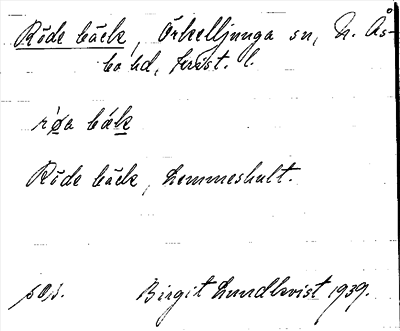 Röde bäck, Örkelljunga sn, N. Ås-
bo hd, krist. l.
rø̀a bák
Röde bäck, Lemmeshult.
sop. Birgit Lundkvist 1939.